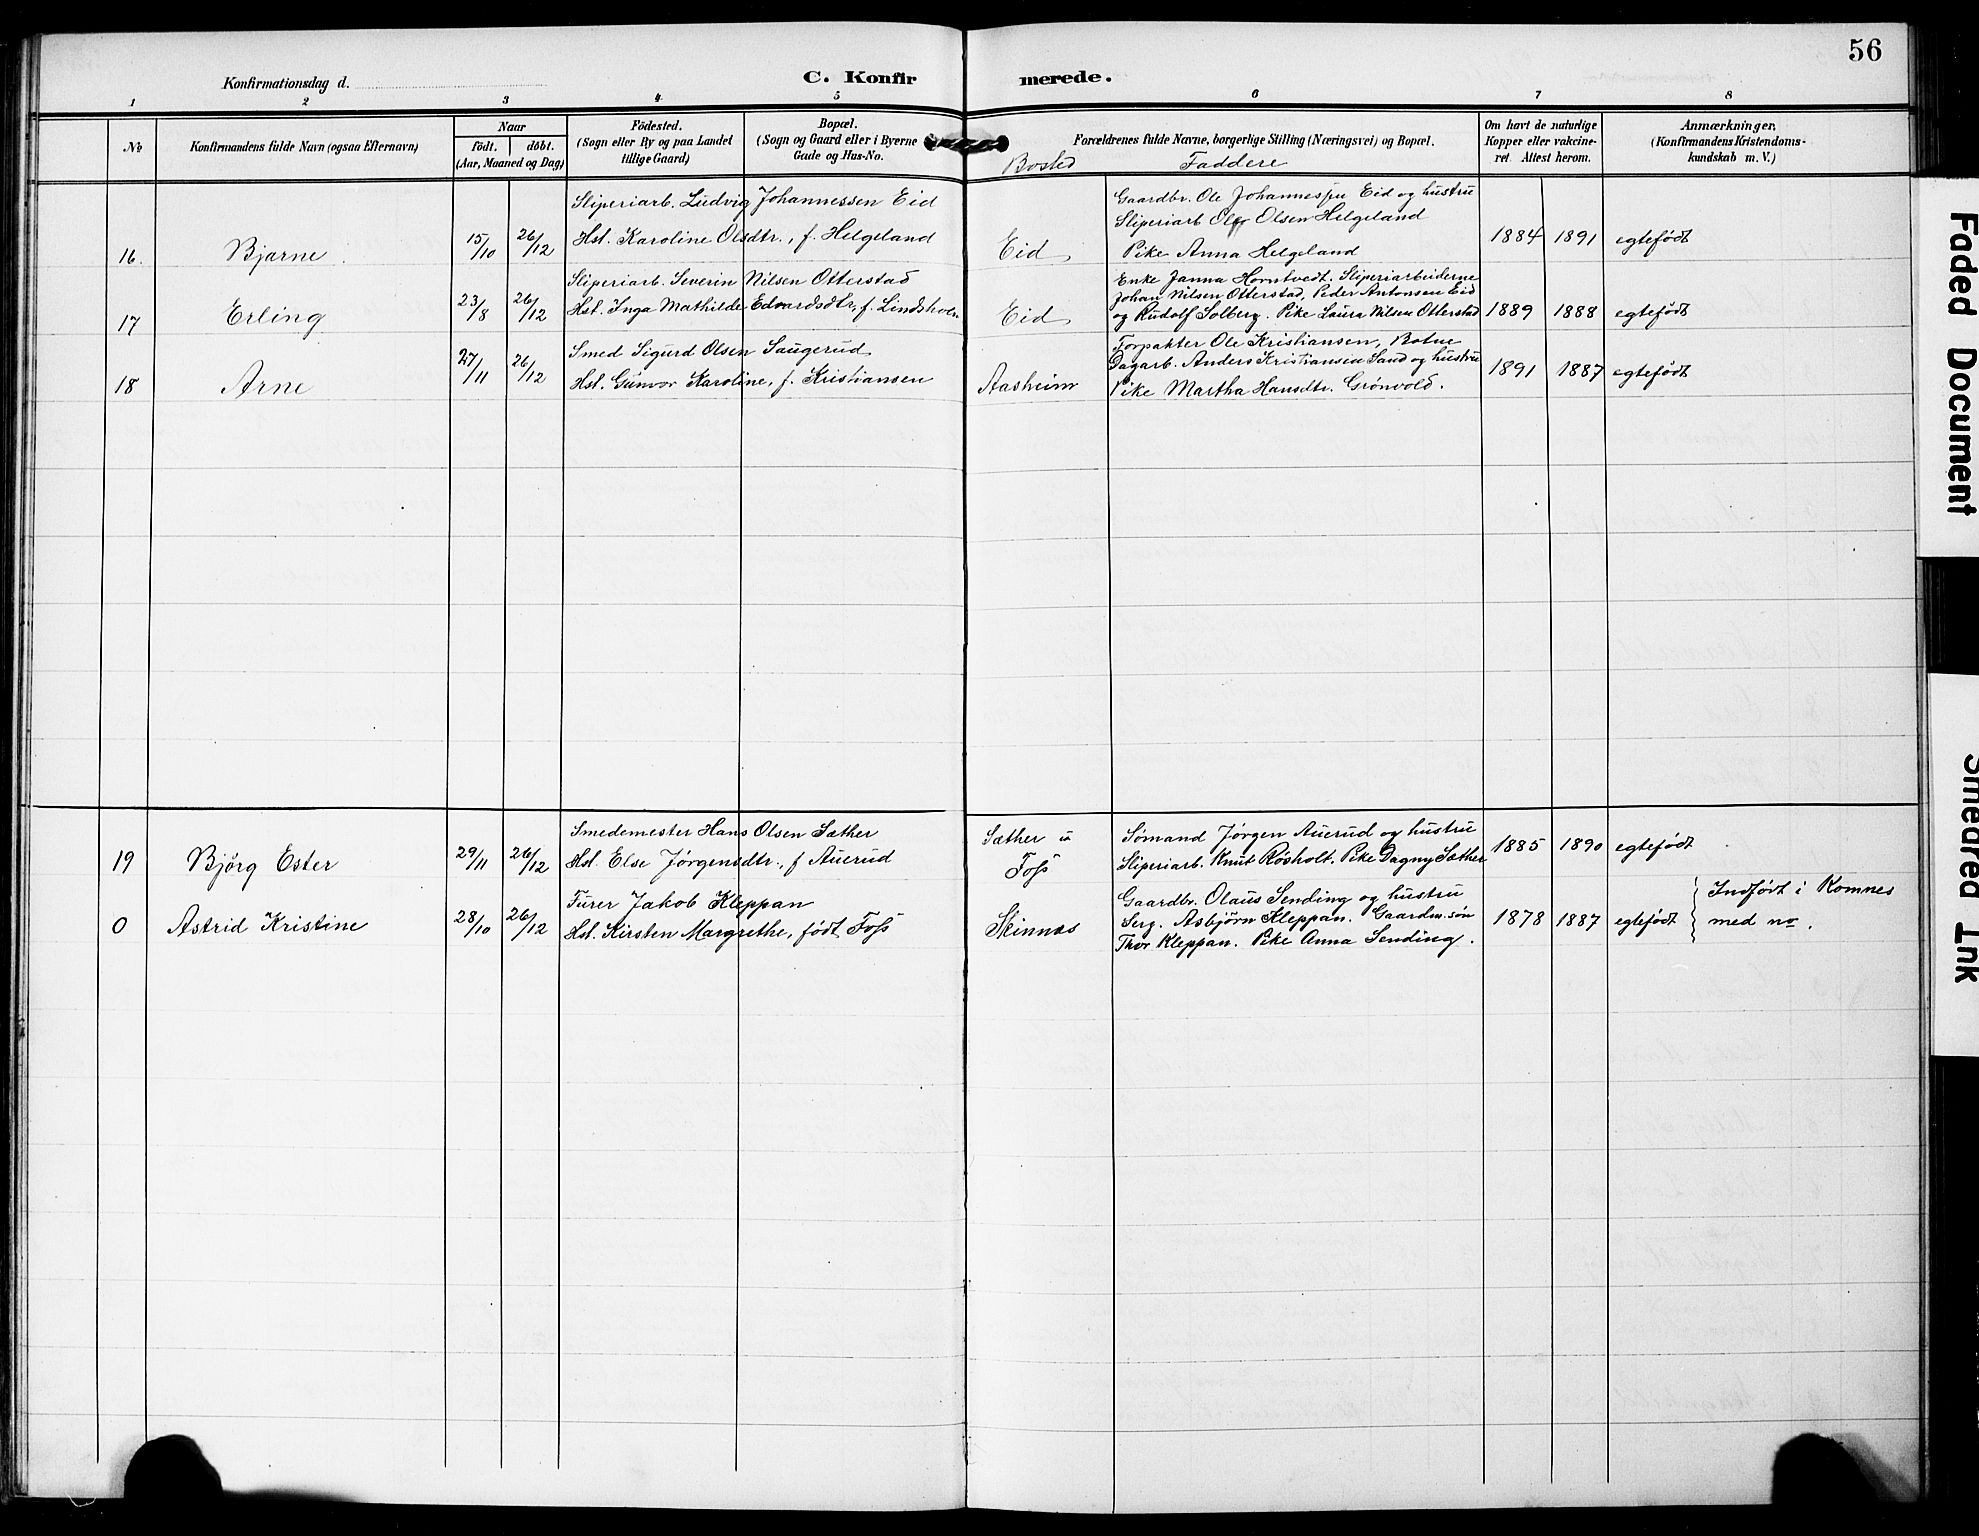 56
Konfirmationsdag d.
C. Konfirmerede.
1 2 3 4 5 6 7 8
No
Konfirmandens fulde Navn (ogsaa Efternavn)
Naar
født. døbt.
(Aar, Maaned og Dag)
Fødested.
(Sogn eller By og paa Landet
tillige Gaard)
Bopæl.
(Sogn og Gaard eller i Byerne
Gade og Hus-No.
Bosted
Forældrenes fulde Navne, borgerlige Stilling (Næringsvei) og Bopæl.
Faddere
Om havt de naturlige
Kopper eller vakcine-
ret. Attest herom.
Anmærkninger.
(Konfirmandens Kristendoms-
kundskab m. V.)
16. Bjarne 15/10 26/12
Sliperiarb. Ludvig Johannessen Eid
Hst. Karoline Olsdtr., f. Helgeland
Eid
Gaardbr. Ole Johannesen Eid og hustru
Sliperiarb Olsen Helgeland
Pike Anna Helgeland
1884 1891 egtefødt
17 Erling 23/8 26/12
Sliperiarb. Severin Nilsen Otterstad
Hst. Inga Mathilde Edvardsdtr, f. Lindsholm
Eid
Enke Janna Horntvedt. Sliperiarbeiderne
Johan Nilsen Otterstad, Peder Antonsen Eid
og Rudolf Solberg. Pike Laura Nilsen Otterstad
1889 1888 egtefødt
18 Arne 27/11 26/12
Smed Sigurd Olsen Saugerud
Hst. Gunvor Karoline, f. Kristiansen
Aasheim
Forpakter Ole Kristiansen, Botne
Dagarb. Anders Kristiansen Sand og hustru
Pike Martha Hansdtr. Grønvold.
1891 1887 egtefødt
19 Bjørg Ester 29/11 26/12
Smedemester Hans Olsen Sæther
Hst. Else Jørgensdtr., f Auerud
Sæther u
Foss
Sømand Jørgen Auerud og hustru
Sliperiarb. Knut Røsholt. Pike Dagny Sæther
1885 1890 egtefødt
0 Astrid Kristine 28/10 26/12
Furer Jakob Kleppan
Hst. Kirsten Margrethe, født Foss
Skinnæs
Gaardbr. Olaus Sending og hustru
Serg. Asbjørn Kleppan. Gaardm.søn
Thor Kleppan. Pike Anna Sending.
1878 1887 egtefødt
Indført i Komnes
med no.
Faded Document
Smeared Ink